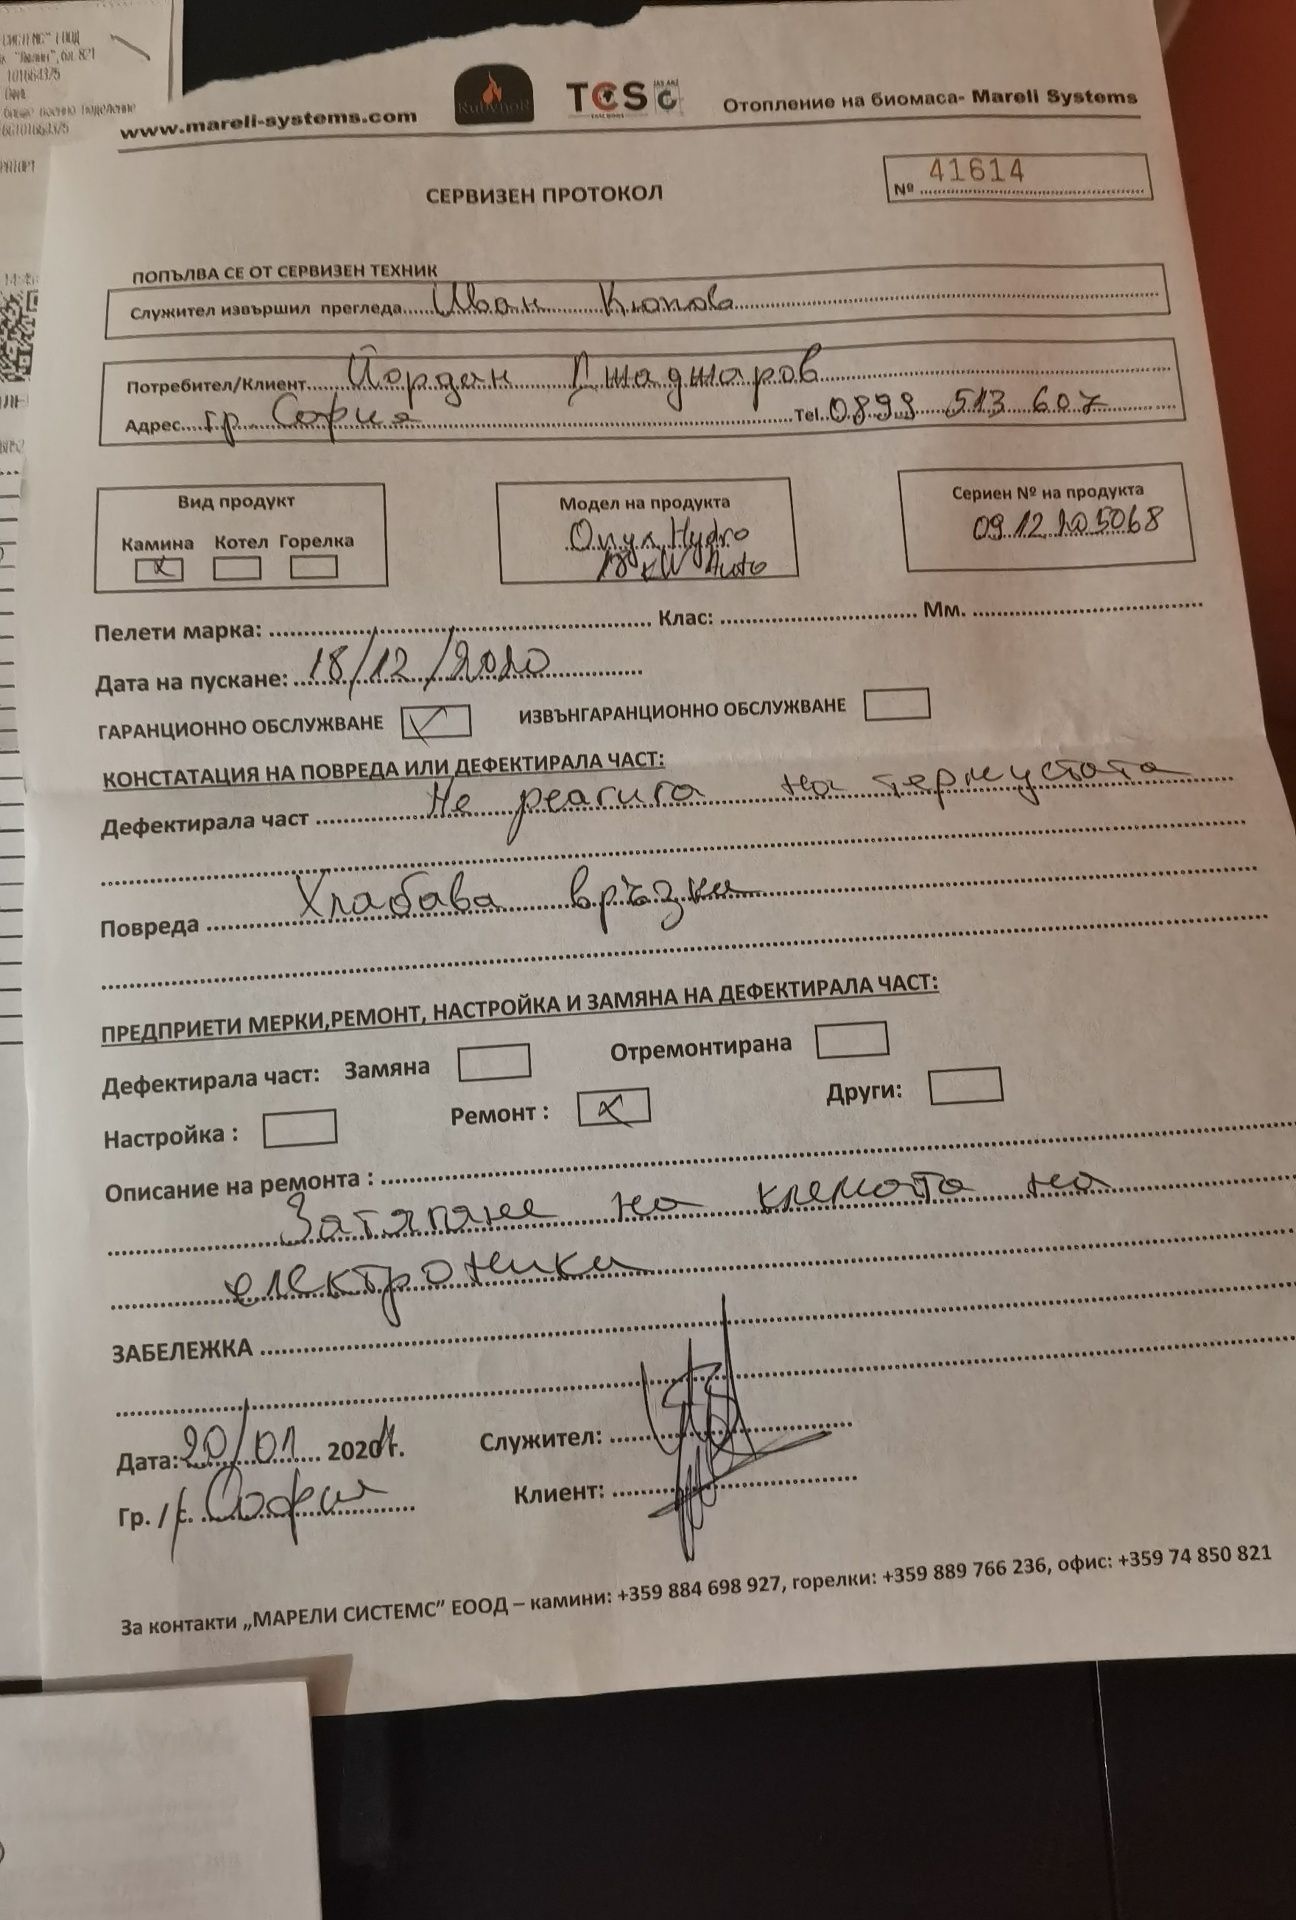 101664375
www.mareli-systems.com
RubynoR
TCS
Отопление на биомаса- Mareli Systems
СЕРВИЗЕН ПРОТОКОЛ
№ 41614
ПОПЪЛВА СЕ ОТ СЕРВИЗЕН ТЕХНИК
Служител извършил прегледа Иван Кюпов
Потребител/Клиент Йордан Джаджаров
Адрес гр. София Tel. 0899 513 607
Вид продукт
Камина Котел Горелка
x
Модел на продукта
Onyx Hydro
18 kW Auto
Сериен № на продукта
09.12.205068
Пелети марка: Клас: Мм.
Дата на пускане: 18/12/2020
ГАРАНЦИОННО ОБСЛУЖВАНЕ ✓ ИЗВЪНГАРАНЦИОННО ОБСЛУЖВАНЕ
КОНСТАТАЦИЯ НА ПОВРЕДА ИЛИ ДЕФЕКТИРАЛА ЧАСТ:
Дефектирала част Не реагира на термустата
Повреда Хлабава връзка
ПРЕДПРИЕТИ МЕРКИ,РЕМОНТ, НАСТРОЙКА И ЗАМЯНА НА ДЕФЕКТИРАЛА ЧАСТ:
Дефектирала част: Замяна Отремонтирана
Настройка : Ремонт : x Други:
Описание на ремонта :
Затягане на клемата на
електроника
ЗАБЕЛЕЖКА
Дата: 20/01 2021г. Служител:
Гр. /с. София Клиент:
За контакти „МАРЕЛИ СИСТЕМС" ЕООД – камини: +359 884 698 927, горелки: +359 889 766 236, офис: +359 74 850 821